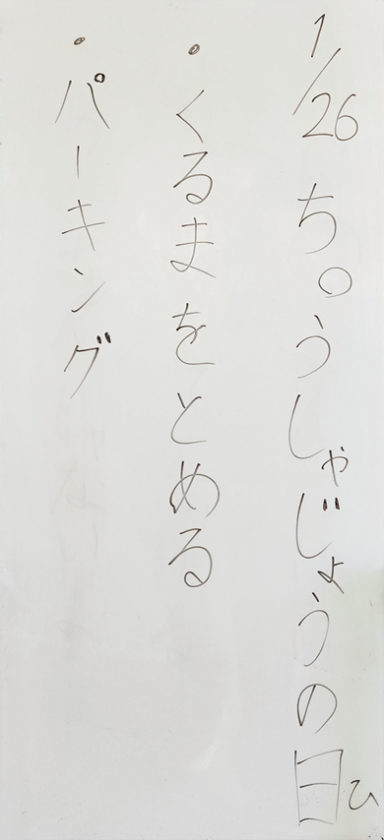 1/26 ち○うしゃじょうの日ひ
・くるまをとめる
・パーキング